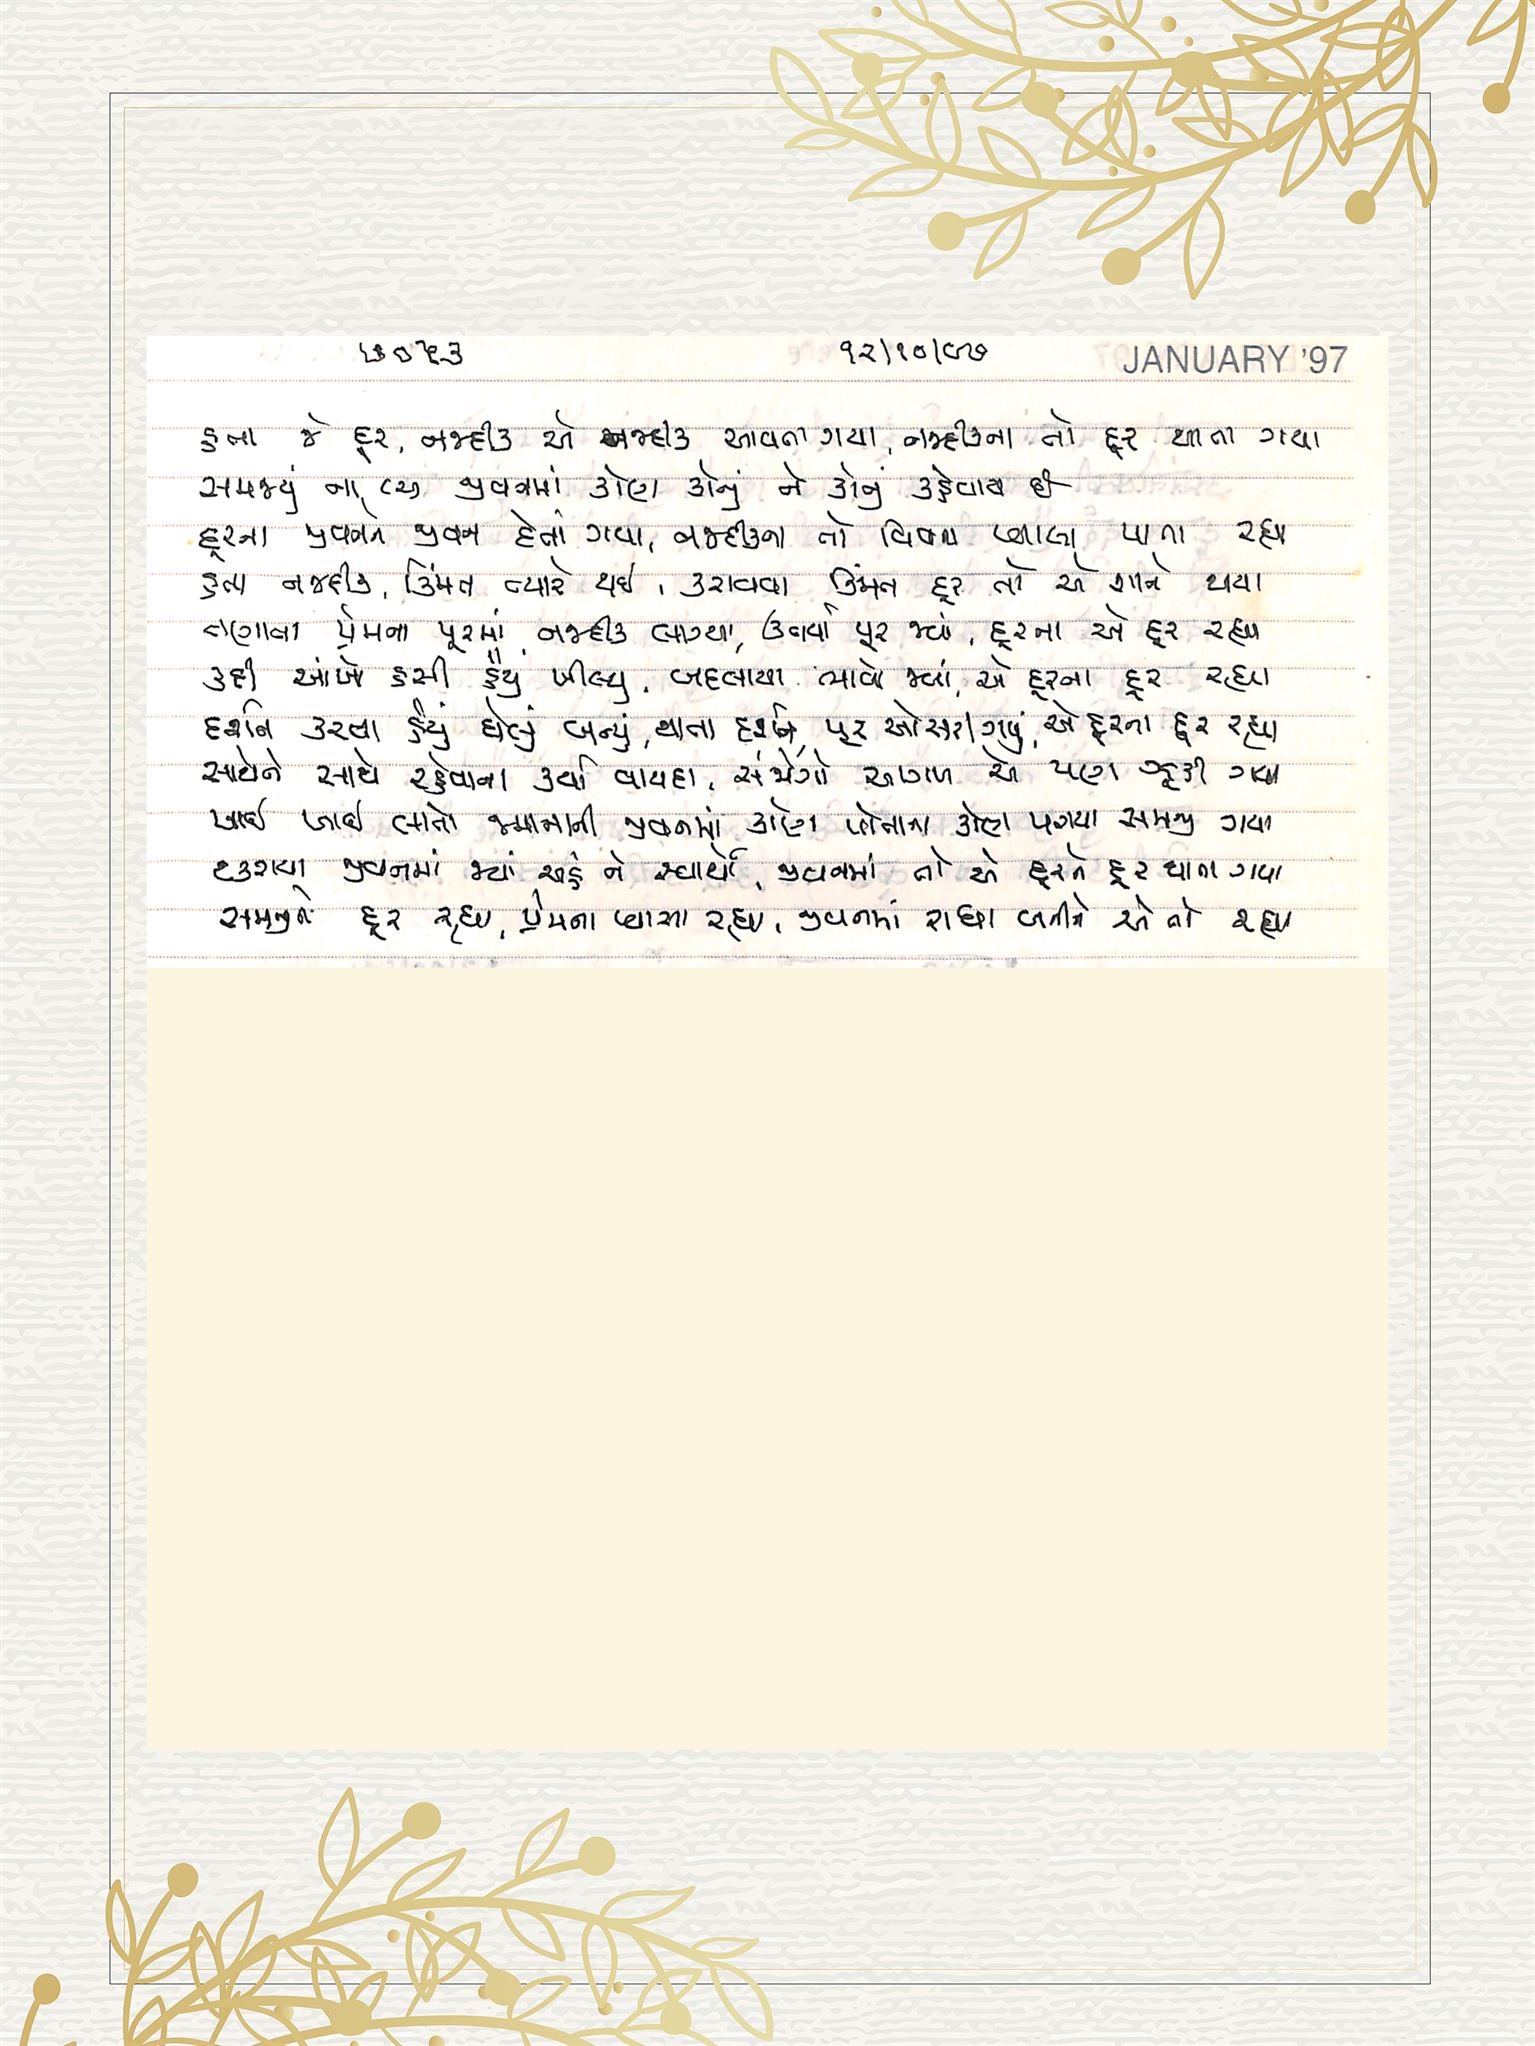 ૭૦૫૩ ૧૨/૧૦/૯૭ JANUARY '97
હતા જે દૂર, નજદીક એ નજદીક આવતા ગયા, નજદીકના તો દૂર થાતા ગયા
સમજાયું ના જીવનમાં કોણ કોનું ને કોનું કહેવાય છે
દૂરના જીવનને જીવન દેતાં ગયા, નજદીકના તો વિષના પ્યાલા પાતા રહ્યા
હતા નજદીક, કિંમત ત્યારે થઈ, કરાવવા કિંમત દૂર તો એ શાને થયા
તણાવી પ્રેમના પૂરમાં નજદીક લાગ્યા, ઉતર્યા પૂર જ્યાં, દૂરના એ દૂર રહ્યા
કદી આંખો હસી હૈયું ખીલ્યુ, બદલાયા ભાવો જ્યાં, એ દૂરના દૂર રહ્યા
દર્શન કરવા હૈયું ઘેલું બન્યું, થાતા દર્શન, પૂર ઓસરી ગયું, એ દૂરના દૂર રહ્યા
સાથેને સાથે રહેવાના કર્યા વાયદા, સંજોગો આગળ એ પણ ઝૂકી ગયા
ખાઈ ખાઈ લાતો જમાનાની જીવનમાં કોણ પોતાના કોણ પરાયા સમજી ગયા
ટકરાયા જીવનમાં જ્યાં અહં ને સ્વાર્થો, જીવનમાં તો એ દૂરને દૂર થાતા ગયા
સમજીને દૂર રહ્યા, પ્રેમના પ્યાસા રહ્યા, જીવનમાં રાધા બનીને એ તો રહ્યા